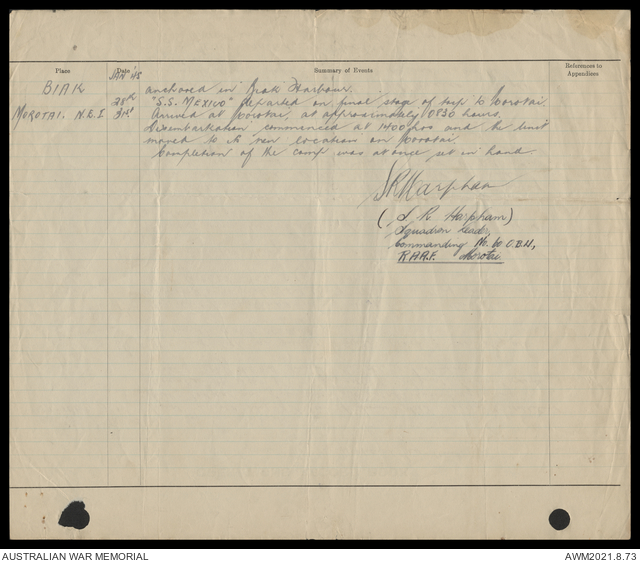 Place Date Summary of Events References to Appendices
JAN '45
BIAK anchored in Biak Harbour.
28th "S.S. MEXICO" departed on final stage of trip to Morotai.
MOROTAI. N.E.I 31st Arrived at Morotai, at approximately 0830 hours.
Disembarkation commenced at 1400 hrs and the unit
moved to its new location on Morotai.
Completion of the camp was at once set in hand
S R Harpham
(S R Harpham)
Squadron Leader,
Commanding No. 60 O.B.U,
R.A.A.F. Morotai
AUSTRALIAN WAR MEMORIAL AWM2021.8.73